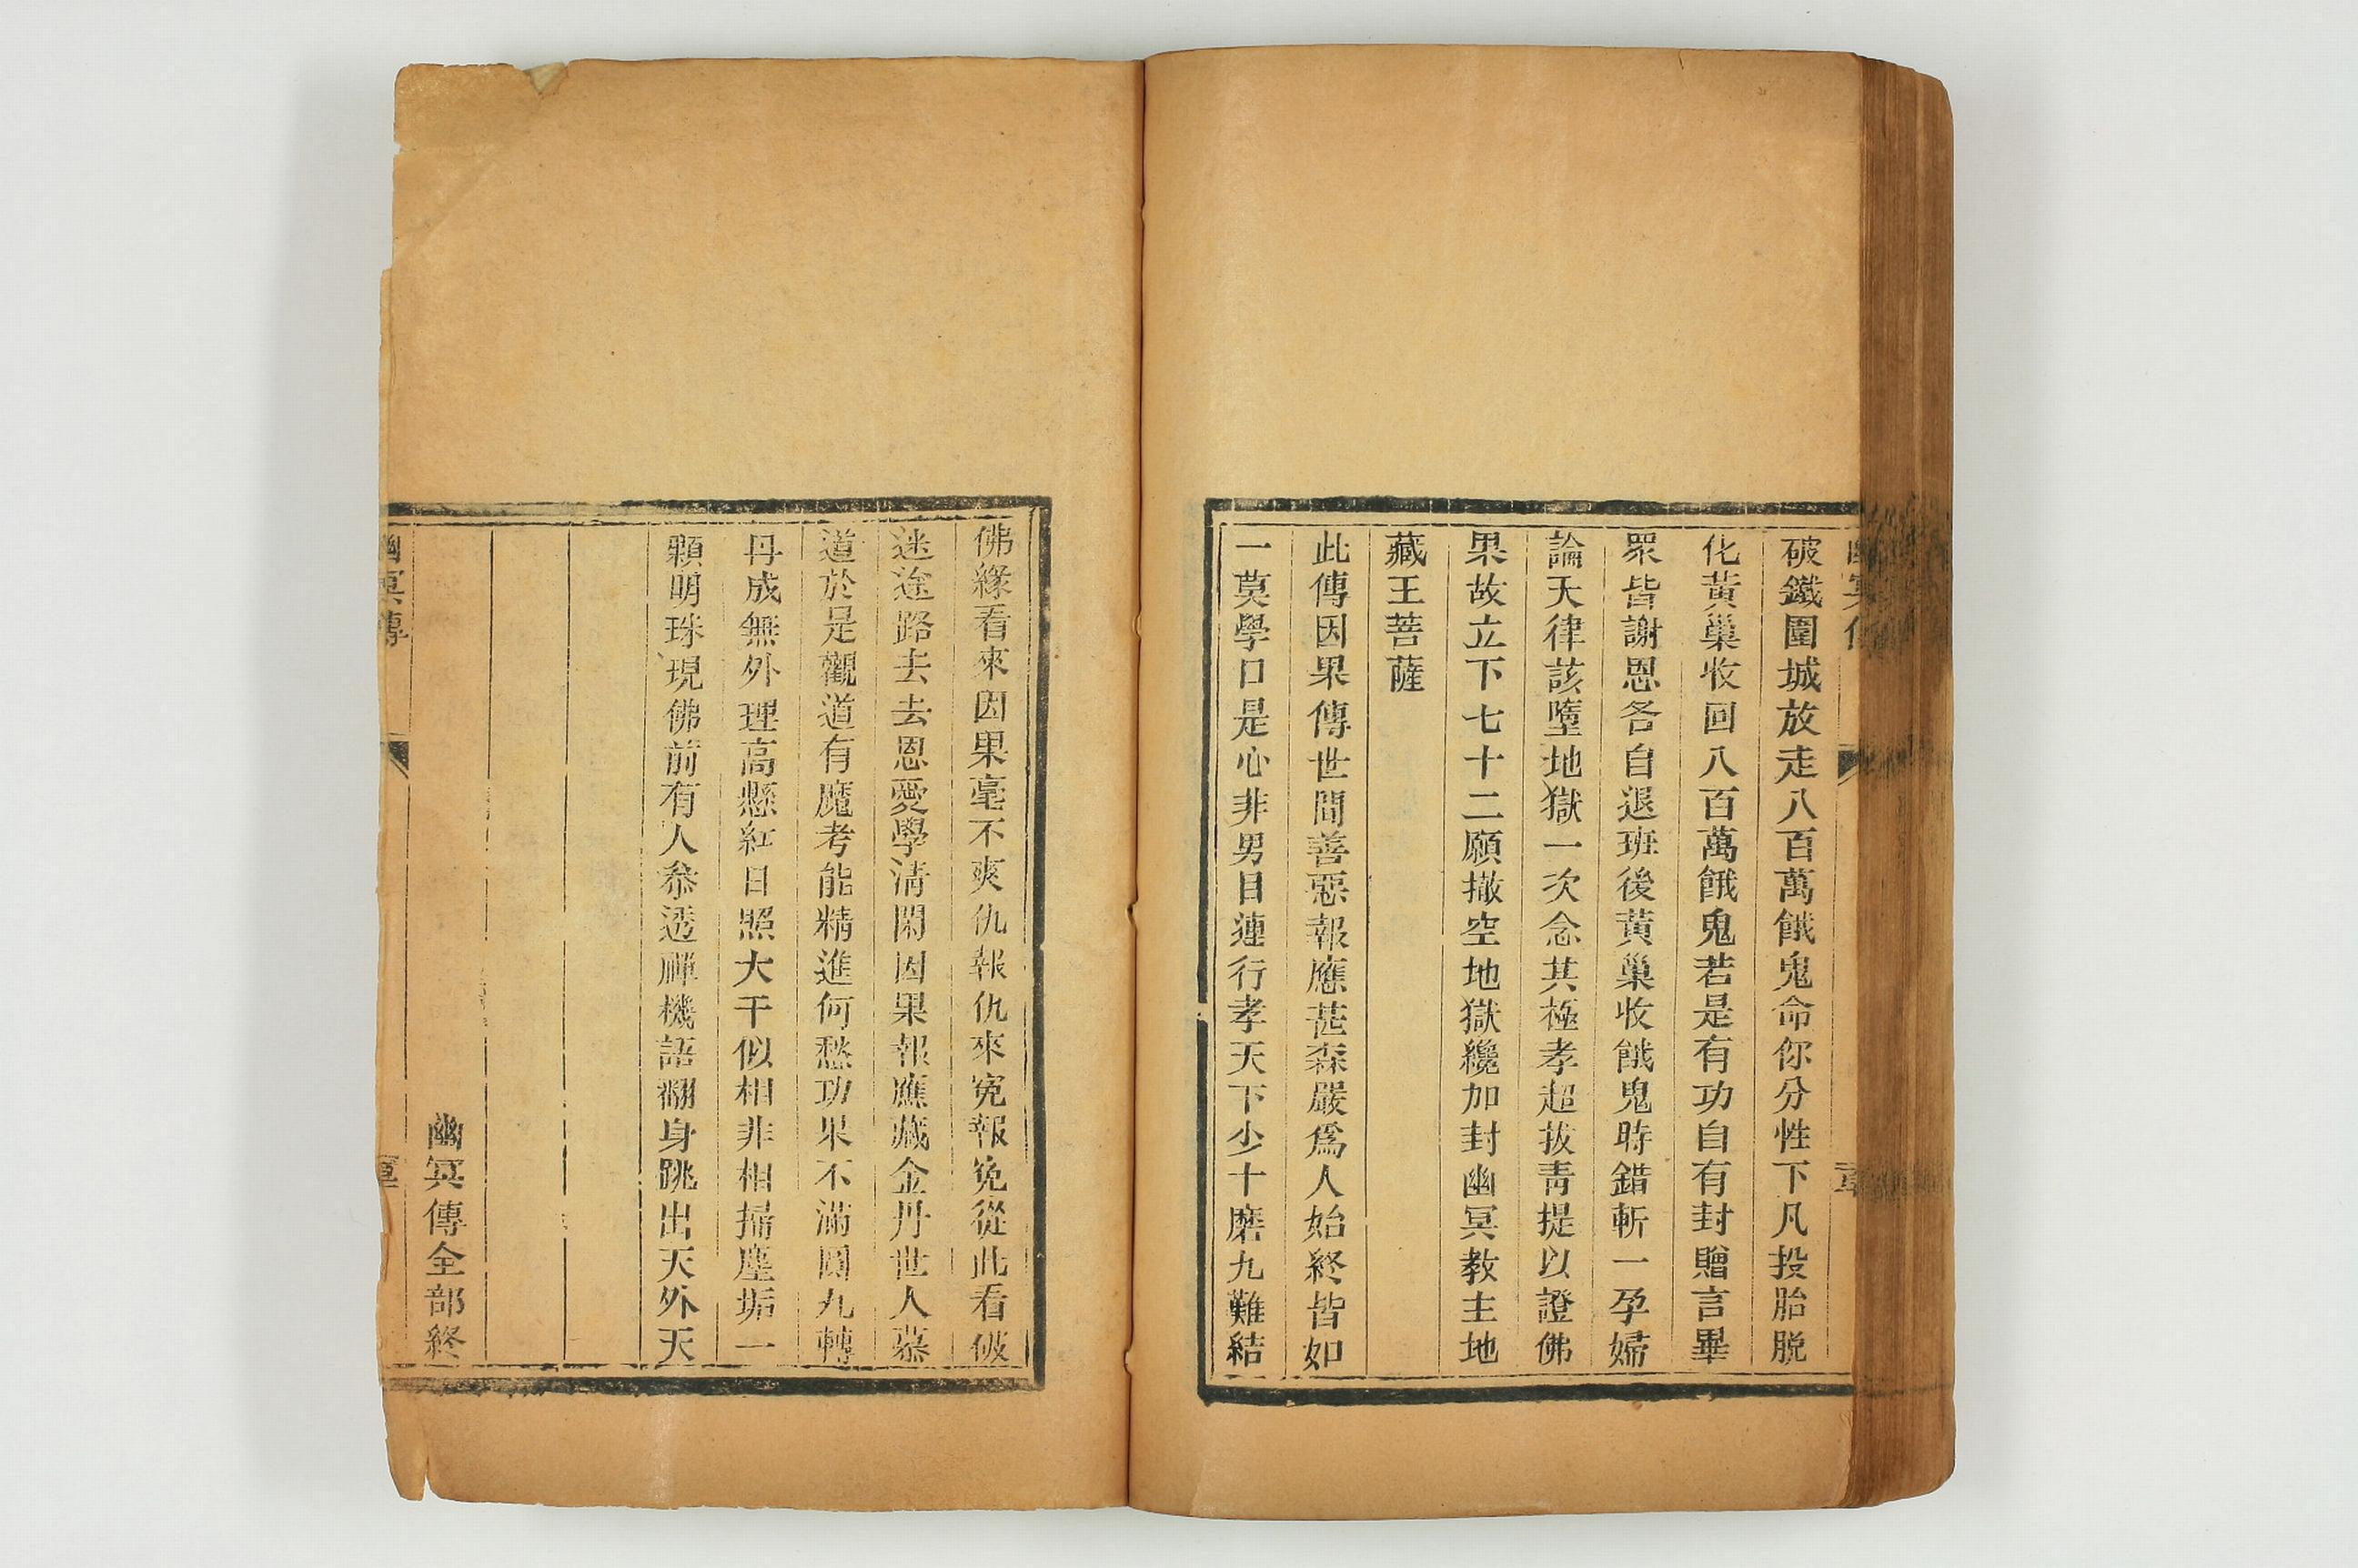 破鐵圍城放走八百萬餓鬼命你分性下凡投胎脱
化黃巢收回八百萬餓鬼若是有功自有封贈言畢
眾皆謝恩各自退班後黃巢收餓鬼時錯斬一孕婦
論天律該墮地獄一次念其極孝超拔青提以證佛
果故立下七十二願撤空地獄纔加封幽冥教主地
藏王菩薩
此傳因果傳世間善惡報應甚森嚴爲人始終皆如
一莫學口是心非男目連行孝天下少十磨九難結
佛緣看來因果毫不爽仇報仇來寃報寃從此看破
迷途路去去恩愛學清閑因果報應藏金丹世人慕
道於是觀道有魔考能精進何愁功果不滿圓九轉
丹成無外理高懸紅日照大千似相非相掃塵垢一
顆明珠現佛前有人叅透禪機語翻身跳出天外天
幽冥傳全部終
幽冥傳